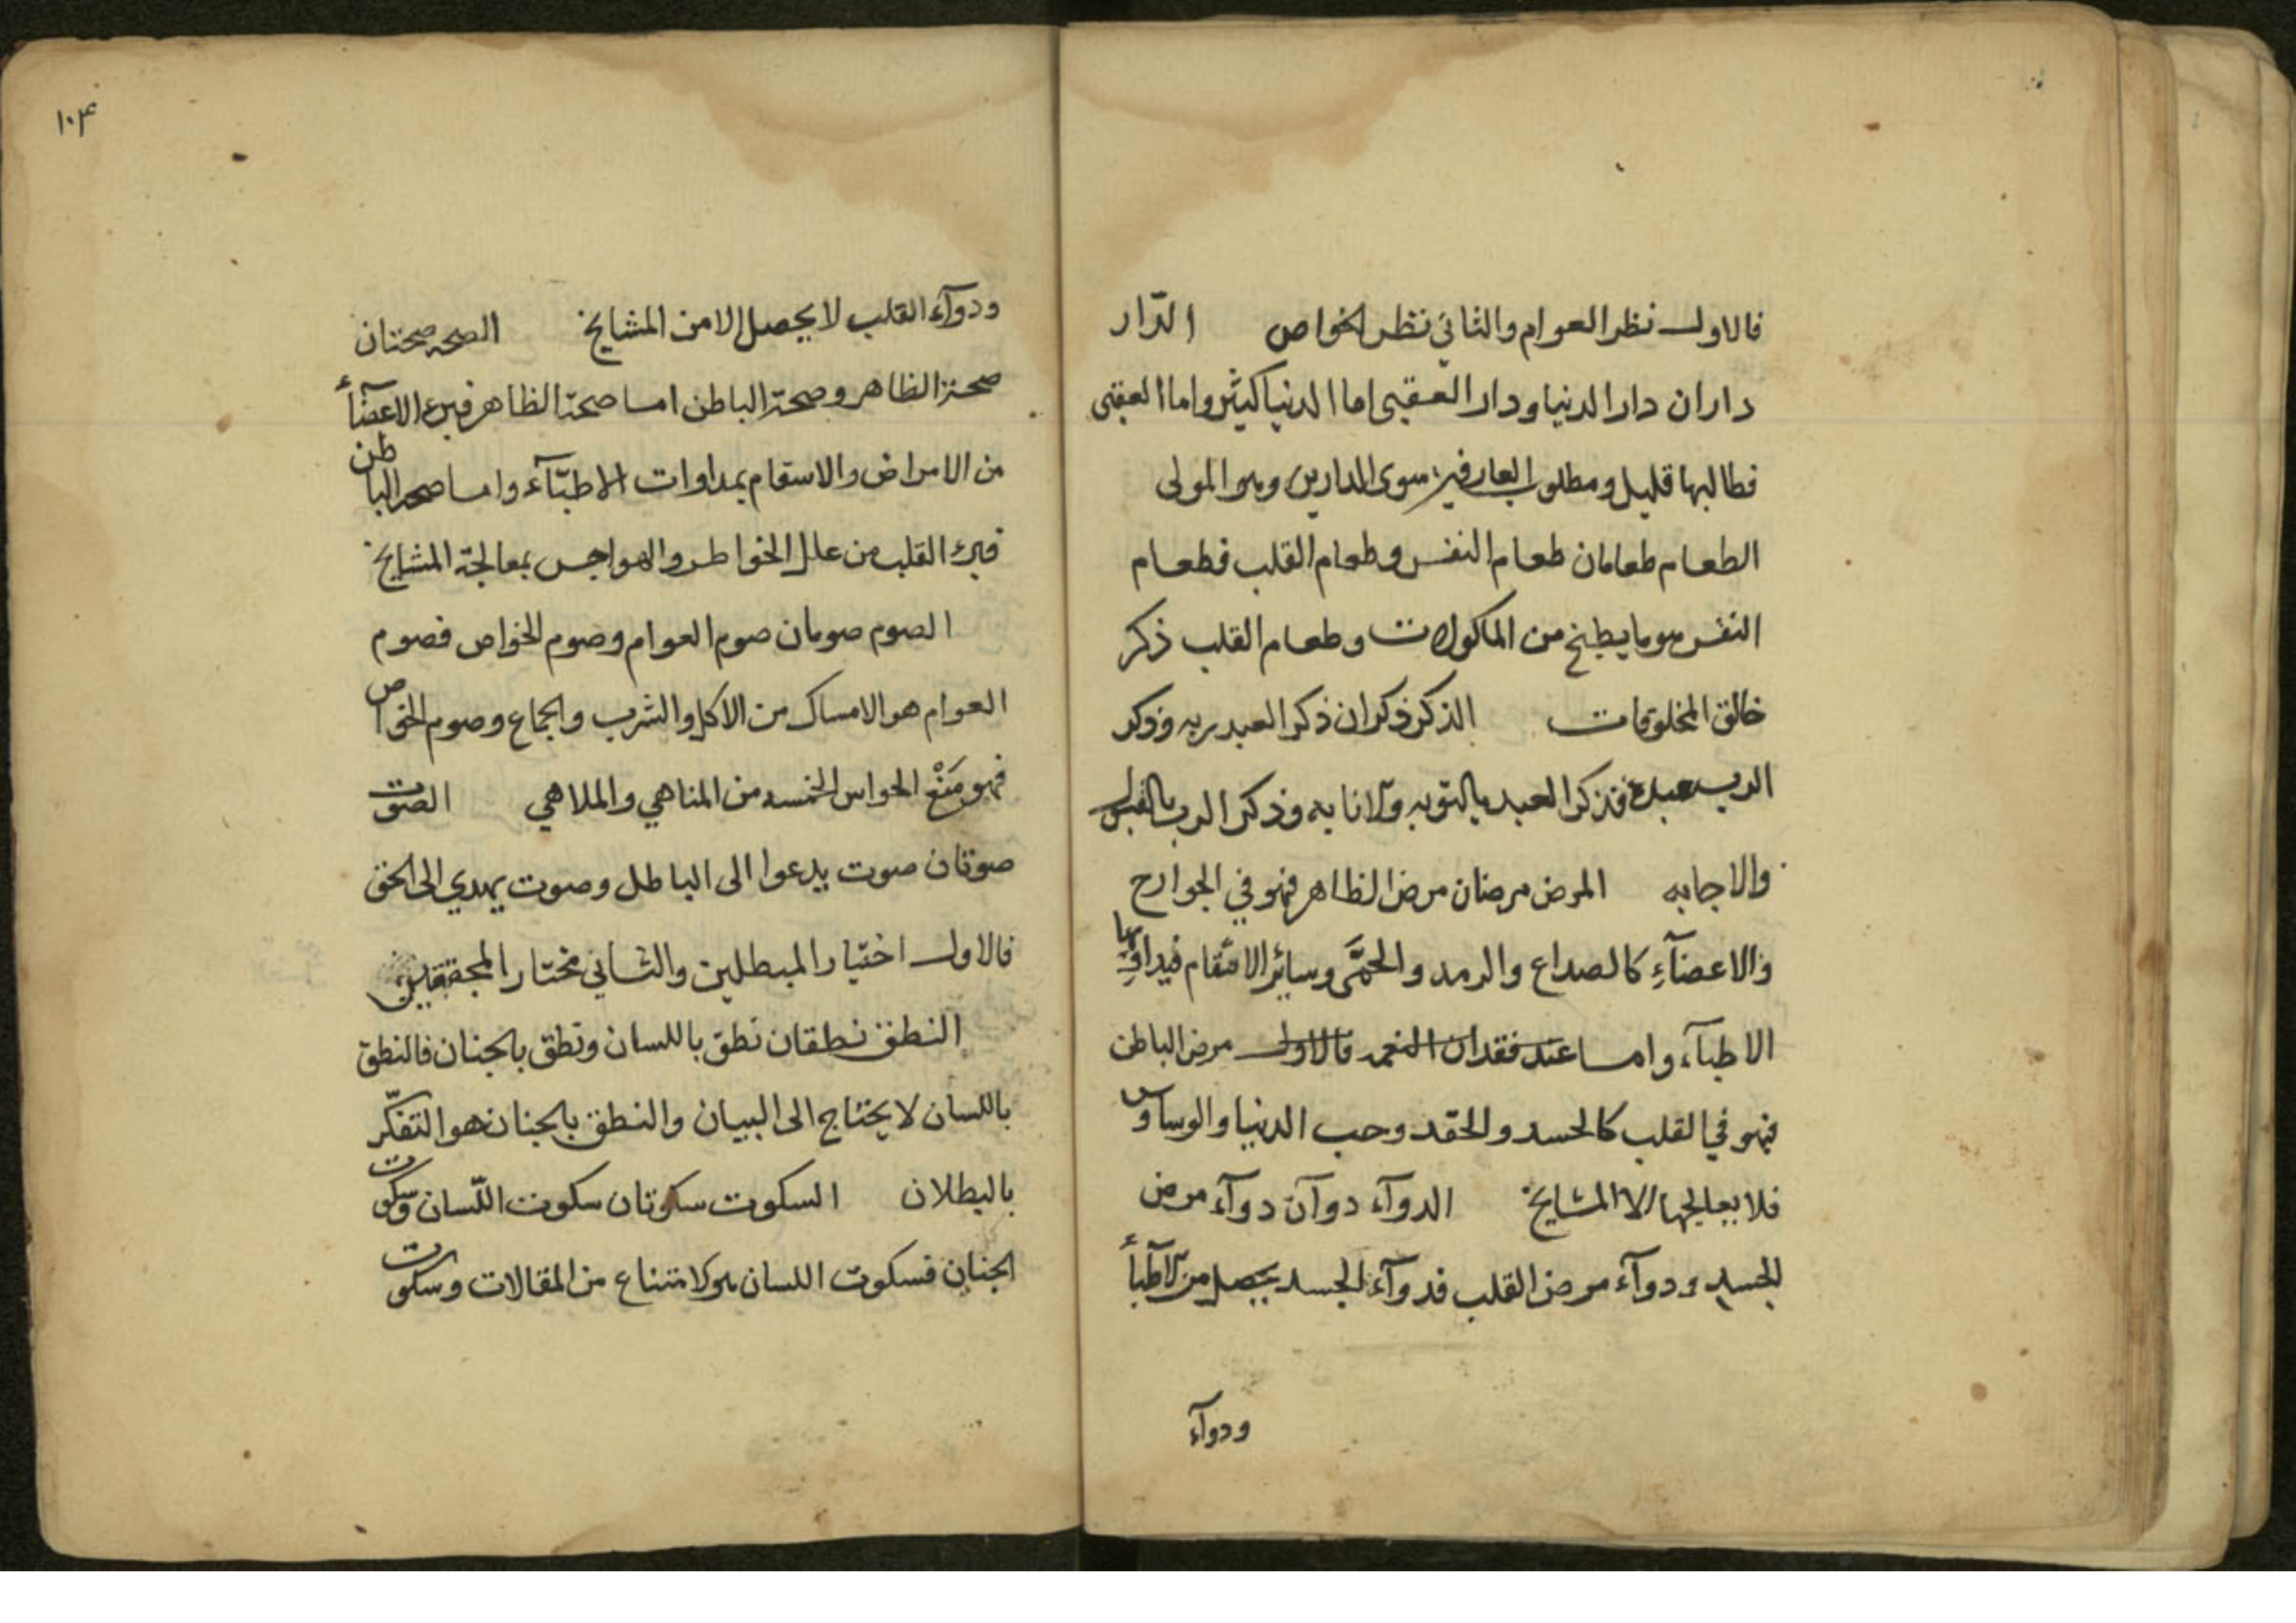 فالاول نظر العوام والثاني نظر الخواص الدّار
داران دار الدنيا ودار العقبى اما الدنيا كثير واما العقبى
فطالبها قليل ومطلوب العارفين سوى الدارين وهو المولى
الطعام طعامان طعام النفس وطعام القلب فطعام
النفس هو ما يطبخ من الماكولات وطعام القلب ذكر
خالق المخلوقات الذكر ذكران ذكر العبد ربه وذكر
الرب عبده فذكر العبد بالتوبه والانابه وذكر الرب بالقبول
والاجابه المرض مرضان مرض الظاهر فهو في الجوارح
والاعضآءِ كالصداع والرمد والحمَّى وسائر الاسقام فيداويها
الاطبآء واما عند فقدان النعمه فالاول مرض الباطن
فهو في القلب كالحسد والحقد وحب الدنيا والوساوس
فلا يعالجها الا المشايخ الدوآء دوآن دوآء مرض
الجسد ودوآء مرض القلب فدوآء الجسد يحصل من الاطبآء
ودوآء
١٠٤
ودوآء القلب لا يحصل الا من المشايخ الصحه صحتان
صحة الظاهر وصحة الباطن اما صحة الظاهر فبرء الاعضآء
من الامراض والاسقام بمداوات الاطبّآء واما صحه الباطن
فبرء القلب من علل الخواطر والهواجس بمعالجة المشايخ
الصوم صومان صوم العوام وصوم الخواص فصوم
العوام هو الامساك من الاكل والشرب والجماع وصوم الخواص
فهو مَنْع الحواس الخمسه من المناهي والملاهي الصوت
صوتان صوت يدعوا الى الباطل وصوت يهدي الى الحق
فالاول اختيار المبطلين والثاني مختار المحققين
النطق نطقان نطق باللسان ونطق بالجنان فالنطق
باللسان لا يحتاج الى البيان والنطق بالجنان هو التفكّر
بالبطلان السكوت سكوتان سكوت اللّسان وسكوت
الجنان فسكوت اللسان هو الامتناع من المقالات وسكوت